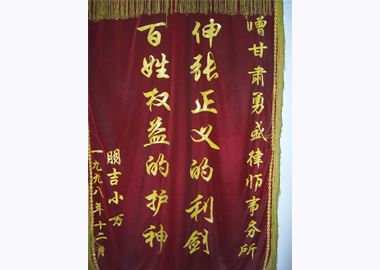 赠甘肃勇盛律师事务所
伸张正义的利剑
百姓权益的护神
朋吉小万
一九九八年十二月